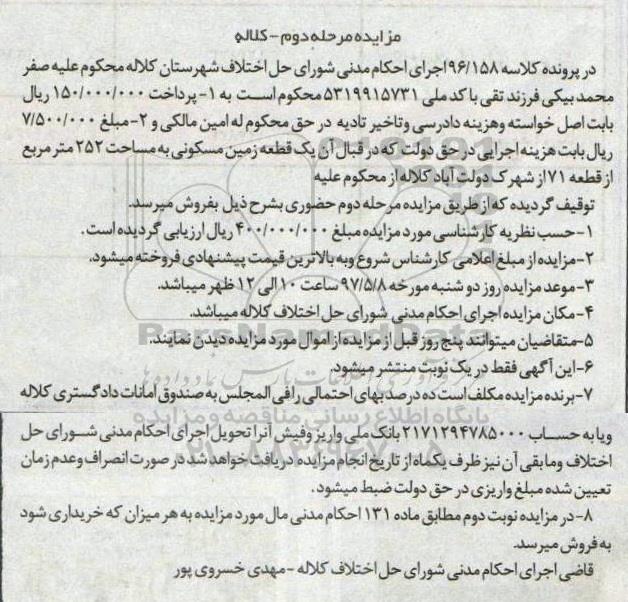 مزایده مرحله دوم - کلاله
در پرونده کلاسه ۹۶/۱۵۸ اجرای احکام مدنی شورای حل اختلاف شهرستان کلاله محکوم علیه صفر
محمد بیکی فرزند تقی با کد ملی ۵۳۱۹۹۱۵۷۳۱ محکوم است به ۱- پرداخت ۱۵۰/۰۰۰/۰۰۰ ریال
بابت اصل خواسته وهزینه دادرسی وتاخیر تادیه در حق محکوم له امین مالکی و ۲- مبلغ ۷/۵۰۰/۰۰۰
ریال بابت هزینه اجرایی در حق دولت که در قبال آن یک قطعه زمین مسکونی به مساحت ۲۵۲ متر مربع
از قطعه ۷۱ از شهرک دولت آباد کلاله از محکوم علیه
توقیف گردیده که از طریق مزایده مرحله دوم حضوری بشرح ذیل بفروش میرسد.
۱- حسب نظریه کارشناسی مورد مزایده مبلغ ۴۰۰/۰۰۰/۰۰۰ ریال ارزیابی گردیده است.
۲- مزایده از مبلغ اعلامی کارشناس شروع وبه بالاترین قیمت پیشنهادی فروخته میشود.
۳- موعد مزایده روز دو شنبه مورخه ۹۷/۵/۸ ساعت ۱۰ الی ۱۲ ظهر میباشد.
۴- مکان مزایده اجرای احکام مدنی شورای حل اختلاف کلاله میباشد.
۵- متقاضیان میتوانند پنج روز قبل از مزایده از اموال مورد مزایده دیدن نمایند.
۶- این آگهی فقط در یک نوبت منتشر میشود.
۷- برنده مزایده مکلف است ده درصد بهای احتمالی را فی المجلس به صندوق امانات دادگستری کلاله
ویا به حساب ۲۱۷۱۲۹۴۷۸۵۰۰۰ بانک ملی واریز وفیش آنرا تحویل اجرای احکام مدنی شورای حل
اختلاف ومابقی آن نیز ظرف یکماه از تاریخ انجام مزایده دریافت خواهد شد در صورت انصراف وعدم زمان
تعیین شده مبلغ واریزی در حق دولت ضبط میشود.
۸- در مزایده نوبت دوم مطابق ماده ۱۳۱ احکام مدنی مال مورد مزایده به هر میزان که خریداری شود
به فروش میرسد.
قاضی اجرای احکام مدنی شورای حل اختلاف کلاله - مهدی خسروی پور
ParsNamadData
پایگاه اطلاع رسانی مناقصه و مزایده